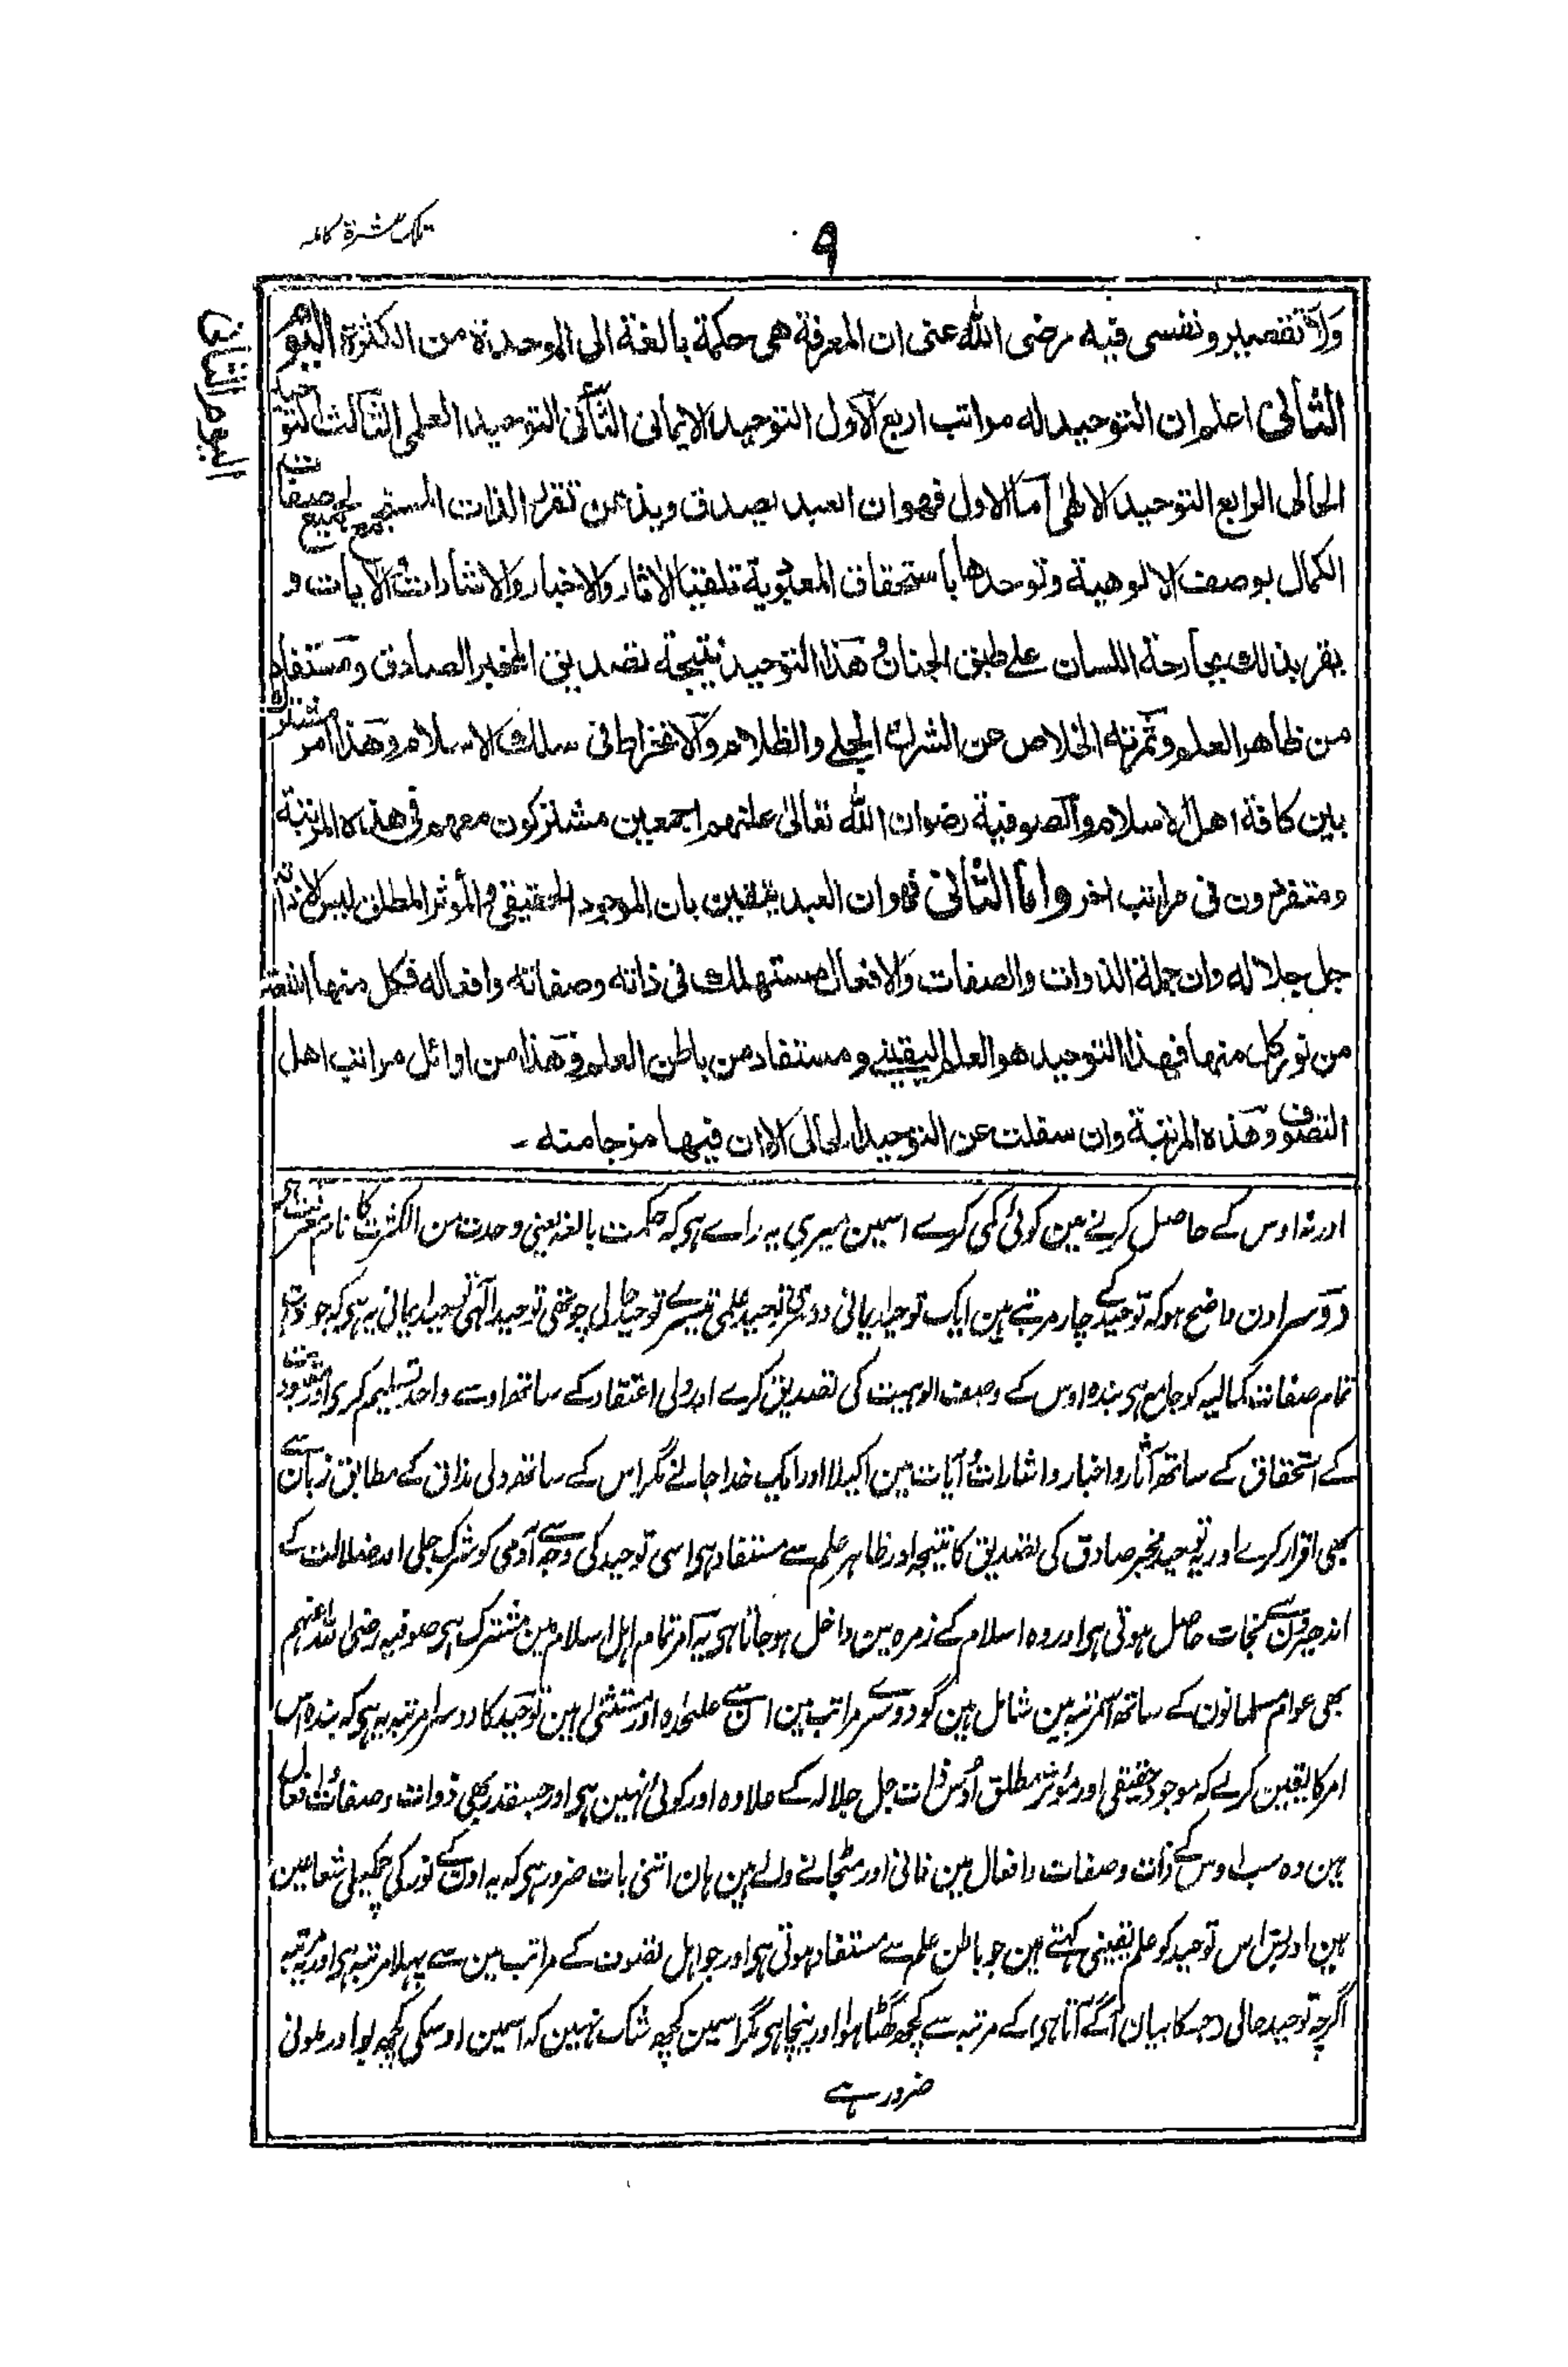 تلک عشرة کامله
۹
الیوم الثانی
ولا تقصیر ونفسی فیه رضی الله عنی ان المعرفة هی حکمة بالغة الی الموحدة من الکثرة الیوم
الثانی اعلم ان التوحید له مراتب اربع الاول التوحید الایمانی الثانی التوحید العلمی الثالث التوحید
الحالی الرابع التوحید الالهی اما الاول فهو ان العبد یصدق ویذعن تقرر الذات المستجمع لجمیع صفات
الکمال بوصف الالوهیة وتوحدها باستحقاق المعبودیة تلقینا الاثار والاخبار والاشارات الآیات و
یقر بذلك بجارحة اللسان علی طبق الجنان وهذا التوحید نتیجة تصدیق المخبر الصادق ومستفاد
من ظاهر العلم وثمرته الخلاص عن الشرك الجلی والظلام والانخراط فی سلك الاسلام وهذا امر مشترك
بین کافة اهل الاسلام والصوفیة رضوان الله تعالیٰ علیهم اجمعین مشترکون معهم فی هذه المرتبة
ومتفردون فی مراتب اخر واما الثانی فهو ان العبد یتیقن بان الموجود الحقیقی والمؤثر المطلق لیس الا ذاته
جل جلاله وان جملة الذوات والصفات والافعال مستهلك فی ذاته وصفاته وافعاله فکل منها اشعة
من نور کل منها فهذا التوحید هو العلم الیقینی ومستفاد من باطن العلم وهذا من اوائل مراتب اهل
التصوف وهذه المرتبة وان سفلت عن التوحید الحالی الا ان فیها مزجا منه ۔
اور نہ اوس کے حاصل کرنے مین کوئی کمی کرے اسمین میری یہ راے ہی کہ حکمت بالغہ یعنی وحدت من الکثرت کا نام معرفت ہی
دوسرا دن واضح ہو کہ توحید کے چار مرتبے ہین ایک توحید ایمانی دوسری توحید علمی تیسرے توحید حالی چوتھی توحید الٰہی توحید ایمانی یہ ہی کہ جو ذات
تمام صفات کمالیہ کو جامع ہی بندہ اوس کے وصف الوہیت کی تصدیق کرے اور دلی اعتقاد کے ساتھ اوسے واحد تسلیم کری اور معبودیت
کے استحقاق کے ساتھ آثار و اخبار و اشارات آیات مین اکیلا اور ایک خدا جانے مگر اس کے ساتھ دلی مذاق کے مطابق زبان سے
بھی اقرار کرے اور یہ توحید مخبر صادق کی تصدیق کا نتیجہ اور ظاہر علم سے مستفاد ہی اسی توحید کی وجہ سے آدمی کو شرک جلی اور ضلالت کے
اندھیرون سے نجات حاصل ہوتی ہی اور وہ اسلام کے زمرہ مین داخل ہو جاتا ہی یہ امر تمام اہل اسلام مین مشترک ہی صوفیہ رضی اللہ عنہم
بھی عوام مسلمانون کے ساتھ اس مرتبہ مین شامل ہین گو دوسرے مراتب مین اُن سے علیٰحدہ اور مستثنیٰ ہین توحید کا دوسرا مرتبہ یہ ہی کہ بندہ اس
امر کا یقین کرلے کہ موجود حقیقی اور مؤثر مطلق اُوس ذات جل جلالہ کے علاوہ اور کوئی نہین ہی اور جسقدر بھی ذوات و صفات و افعال
ہین وہ سب اوس کے ذات و صفات و افعال مین فانی اور مٹ جانے والے ہین ہان اتنی بات ضرور ہی کہ یہ اون کے نور کی چمکیلی شعاعین
ہین اور بس اس توحید کو علم یقینی کہتے ہین جو باطن علم سے مستفاد ہوتی ہی اور جو اہل تصوف کے مراتب مین سے پہلا مرتبہ ہی اور یہ مرتبہ
اگرچہ توحید حالی جسکا بیان آگے آتا ہی کے مرتبہ سے کچھ گھٹا ہوا اور نیچا ہی مگر اسمین کچھ شک نہین کہ اسمین اوسکی کچھ بو اور ملونی
ضرور ہے